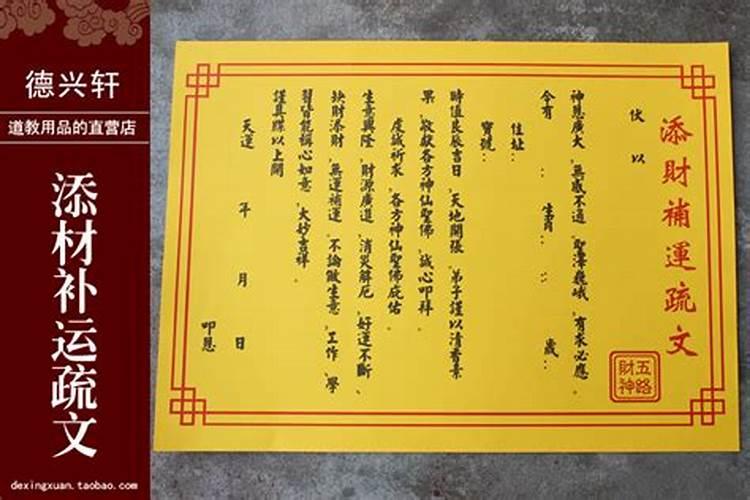 德兴轩
道教用品的直营店
添材补运疏文
dexingxuan.taobao.com
添財補運疏文
五路
財神
伏以
神恩廣大、無感不通、聖澤巍峨、有求必應。
今有：生肖：：歲：
住址：
寶號：
時值良辰吉日、天地開張、弟子謹以清香素
果、敬獻各方神仙聖佛、誠心叩拜。
虔誠祈求、各方神仙聖佛庇佑。
生意興隆、財源廣進、消災解厄、好運不斷、
缺財添財、無運補運、不論做生意、工作、學
習皆能稱心如意、大妙吉祥。
謹具牒以上聞
天運年月日
叩恩